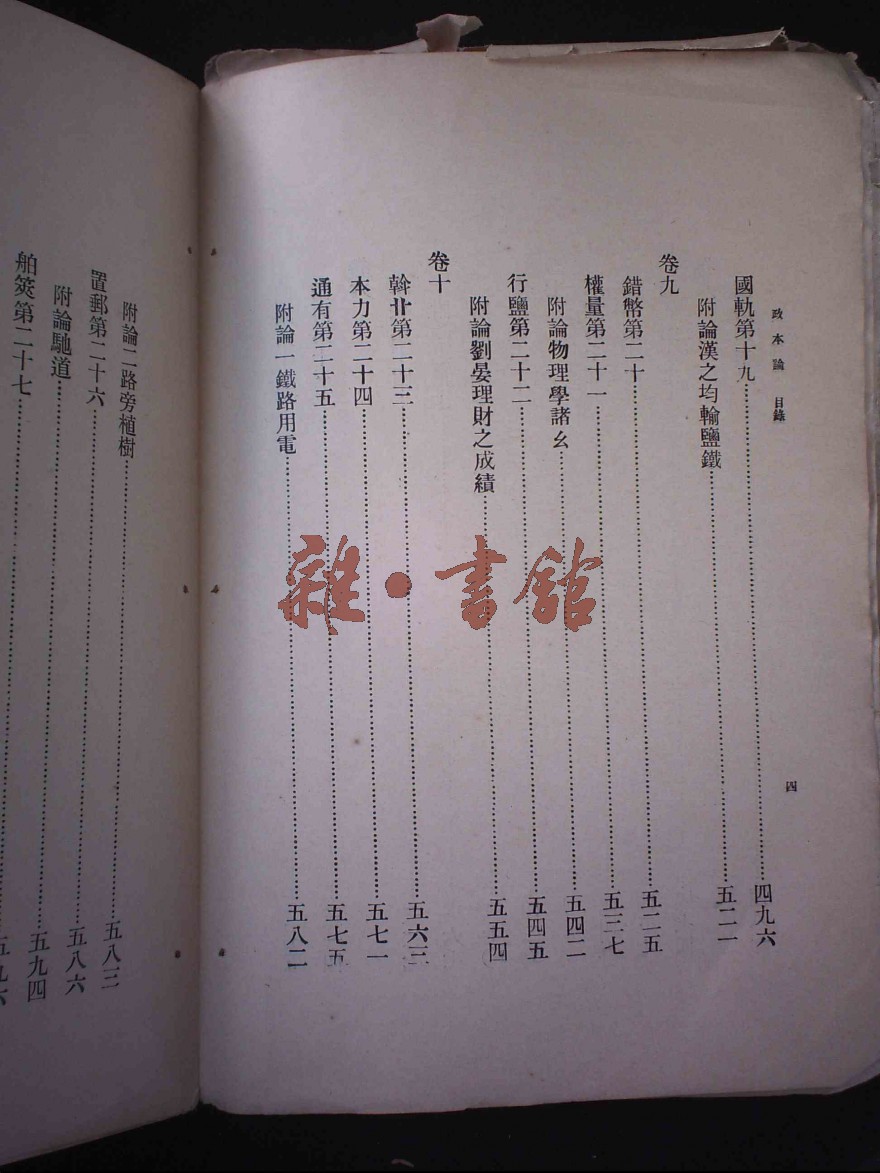 政本論 目錄
四
國軌第十九……四九六
附論漢之均輸鹽鐵……五二一
卷九
錯幣第二十……五二五
權量第二十一……五三七
附論物理學諸幺……五四二
行鹽第二十二……五四五
附論劉晏理財之成績……五五四
卷十
斡卝第二十三……五六三
本力第二十四……五七一
通有第二十五……五七五
附論一鐵路用電……五八二
附論二路旁植樹……五八三
置郵第二十六……五八六
附論馳道……五九四
舶筴第二十七……五九六
雜·書館